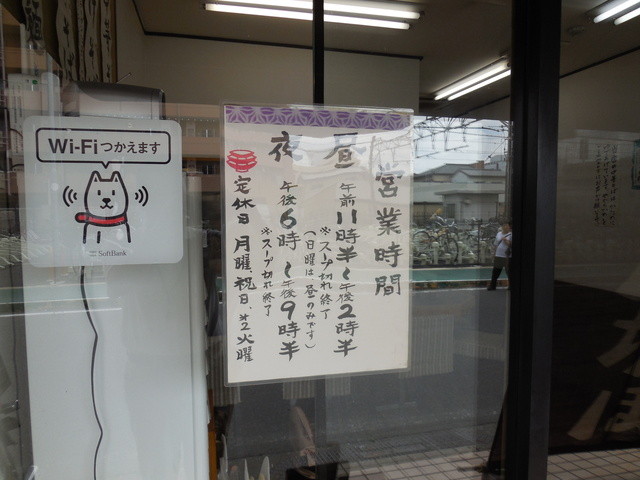 Wi-Fiつかえます
SoftBank
営業時間
昼 午前11時半〜午後2時半
※スープ切れ終了
(日曜は昼のみです)
夜 午後6時〜午後9時半
※スープ切れ終了
定休日 月曜祝日、第2火曜